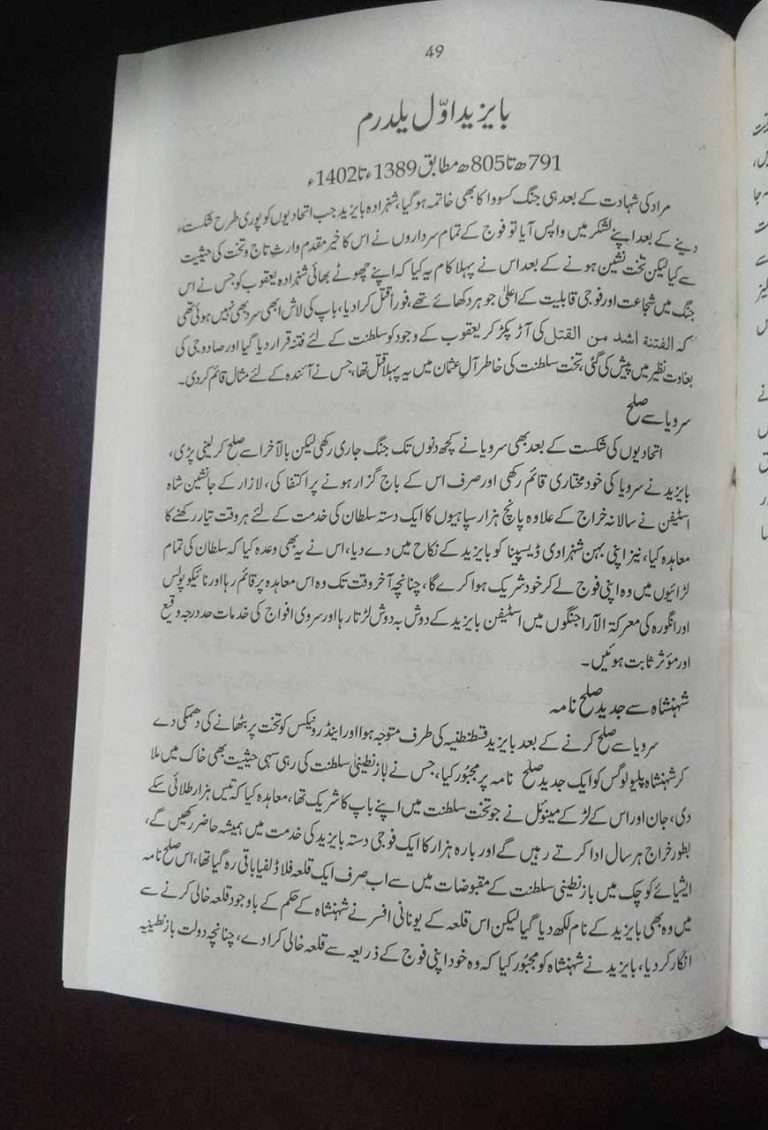 49
بایزید اوّل یلدرم
791ھ تا 805ھ مطابق 1389ء تا 1402ء
مراد کی شہادت کے بعد ہی جنگ کسووا کا بھی خاتمہ ہوگیا، شہزادہ بایزید جب اتحادیوں کو پوری طرح شکست
دینے کے بعد اپنے لشکر میں واپس آیا تو فوج کے تمام سرداروں نے اس کا خیر مقدم وارثِ تاج و تخت کی حیثیت
سے کیا لیکن تخت نشین ہونے کے بعد اس نے پہلا کام یہ کیا کہ اپنے چھوٹے بھائی شہزادہ یعقوب کو جس نے اس
جنگ میں شجاعت اور فوجی قابلیت کے اعلیٰ جوہر دکھائے تھے، فوراً قتل کرادیا، باپ کی لاش ابھی سرد بھی نہیں ہوئی تھی
کہ الفتنة اشد من القتل کی آڑ پکڑ کر یعقوب کے وجود کو سلطنت کے لئے فتنہ قرار دیا گیا اور صادوجی کی
بغاوت نظیر میں پیش کی گئی، تخت سلطنت کی خاطر آلِ عثمان میں یہ پہلا قتل تھا، جس نے آئندہ کے لئے مثال قائم کردی۔
سرویا سے صلح
اتحادیوں کی شکست کے بعد بھی سرویا نے کچھ دنوں تک جنگ جاری رکھی لیکن بالآخر اسے صلح کرلینی پڑی،
بایزید نے سرویا کی خودمختاری قائم رکھی اور صرف اس کے باج گزار ہونے پر اکتفا کی، لازار کے جانشین شاہ
اسٹیفن نے سالانہ خراج کے علاوہ پانچ ہزار سپاہیوں کا ایک دستہ سلطان کی خدمت کے لئے ہر وقت تیار رکھنے کا
معاہدہ کیا، نیز اپنی بہن شہزادی ڈیسپینا کو بایزید کے نکاح میں دے دیا، اس نے یہ بھی وعدہ کیا کہ سلطان کی تمام
لڑائیوں میں وہ اپنی فوج لے کر خود شریک ہوا کرے گا، چنانچہ آخر وقت تک وہ اس معاہدہ پر قائم رہا اور نائیکوپولس
اور انگورہ کی معرکۃ الآرا جنگوں میں اسٹیفن بایزید کے دوش بہ دوش لڑتا رہا اور سروی افواج کی خدمات حد درجہ وقیع
اور مؤثر ثابت ہوئیں۔
شہنشاہ سے جدید صلح نامہ
سرویا سے صلح کرنے کے بعد بایزید قسطنطنیہ کی طرف متوجہ ہوا اور اینڈرونیکس کو تخت پر بٹھانے کی دھمکی دے
کر شہنشاہ پلیولوگس کو ایک جدید صلح نامہ پر مجبور کیا، جس نے بازنطینی سلطنت کی رہی سہی حیثیت بھی خاک میں ملا
دی، جان اور اس کے لڑکے مینوئل نے جو تخت سلطنت میں اپنے باپ کا شریک تھا، معاہدہ کیا کہ تیس ہزار طلائی سکے
بطور خراج ہر سال ادا کرتے رہیں گے اور بارہ ہزار کا ایک فوجی دستہ بایزید کی خدمت میں ہمیشہ حاضر رکھیں گے،
ایشیائے کوچک میں بازنطینی سلطنت کے مقبوضات میں سے اب صرف ایک قلعہ فلاڈلفیا باقی رہ گیا تھا، اس صلح نامہ
میں وہ بھی بایزید کے نام لکھ دیا گیا لیکن اس قلعہ کے یونانی افسر نے شہنشاہ کے حکم کے باوجود قلعہ خالی کرنے سے
انکار کردیا، بایزید نے شہنشاہ کو مجبور کیا کہ وہ خود اپنی فوج کے ذریعہ سے قلعہ خالی کرادے، چنانچہ دولت بازنطینیہ